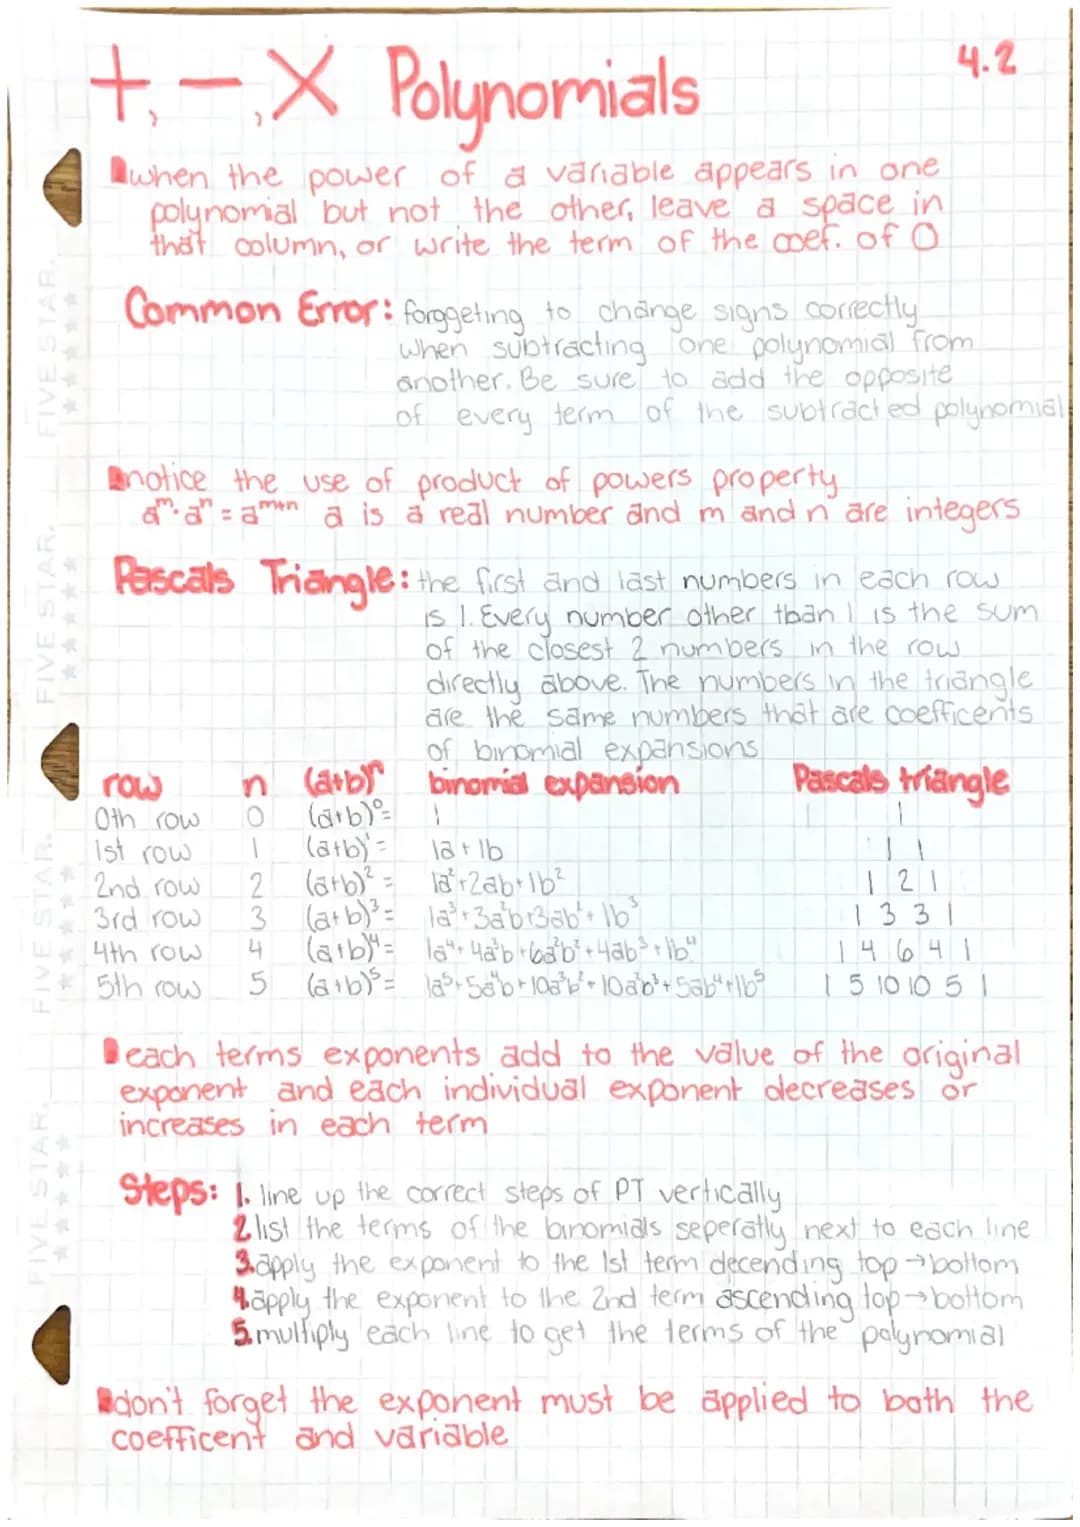 +, -, X Polynomials 4.2
when the power of a variable appears in one
polynomial but not the other, leave a space in
that column, or write the term of the coef. of 0
Common Error: forggeting to change signs correctly
when subtracting one polynomial from
another. Be sure to add the opposite
of every term of the subtracted polynomial
notice the use of product of powers property
aᵐ·aⁿ = aᵐ⁺ⁿ a is a real number and m and n are integers
Pascals Triangle: the first and last numbers in each row
is 1. Every number other than 1 is the sum
of the closest 2 numbers in the row
directly above. The numbers in the triangle
are the same numbers that are coefficents
of binomial expansions
row n (a+b)ⁿ binomial expansion Pascals triangle
0th row 0 (a+b)⁰= 1 1
1st row 1 (a+b)¹= 1a+1b 1 1
2nd row 2 (a+b)²= 1a²+2ab+1b² 1 2 1
3rd row 3 (a+b)³= 1a³+3a²b+3ab²+1b³ 1 3 3 1
4th row 4 (a+b)⁴= 1a⁴+4a³b+6a²b²+4ab³+1b⁴ 1 4 6 4 1
5th row 5 (a+b)⁵= 1a⁵+5a⁴b+10a³b²+10a²b³+5ab⁴+1b⁵ 1 5 10 10 5 1
each terms exponents add to the value of the original
exponent and each individual exponent decreases or
increases in each term
Steps: 1. line up the correct steps of PT vertically
2. list the terms of the binomials seperatly next to each line
3. apply the exponent to the 1st term decending top→bottom
4. apply the exponent to the 2nd term ascending top→bottom
5. multiply each line to get the terms of the polynomial
don't forget the exponent must be applied to both the
coefficent and variable
FIVE STAR.
FIVE STAR.
FIVE STAR.
FIVE STAR.